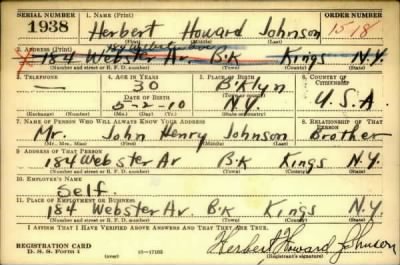 SERIAL NUMBER 1. NAME (Print) ORDER NUMBER
1938 Herbert Howard Johnson 1518
(First) (Middle) (Last)
2. ADDRESS (Print)
184 Webster Av. B'k Kings N.Y.
(Number and street or R. F. D. number) (Town) (County) (State)
3. TELEPHONE 4. AGE IN YEARS 5. PLACE OF BIRTH 6. COUNTRY OF CITIZENSHIP
— 30 B'klyn
DATE OF BIRTH U.S.A.
5-2-10 N.Y.
(Exchange) (Number) (Mo.) (Day) (Yr.) (State or county)
7. NAME OF PERSON WHO WILL ALWAYS KNOW YOUR ADDRESS 8. RELATIONSHIP OF THAT PERSON
Mr. John Henry Johnson Brother
(Mr., Mrs., Miss) (First) (Middle) (Last)
9. ADDRESS OF THAT PERSON
184 Webster Av B'k Kings N.Y.
(Number and street or R. F. D. number) (Town) (County) (State)
10. EMPLOYER'S NAME
Self.
11. PLACE OF EMPLOYMENT OR BUSINESS
184 Webster Av. B'k Kings N.Y.
(Number and street or R. F. D. number) (Town) (County) (State)
I AFFIRM THAT I HAVE VERIFIED ABOVE ANSWERS AND THAT THEY ARE TRUE.
Herbert Howard Johnson
REGISTRATION CARD
D. S. S. Form 1 (over) (Registrant's signature)